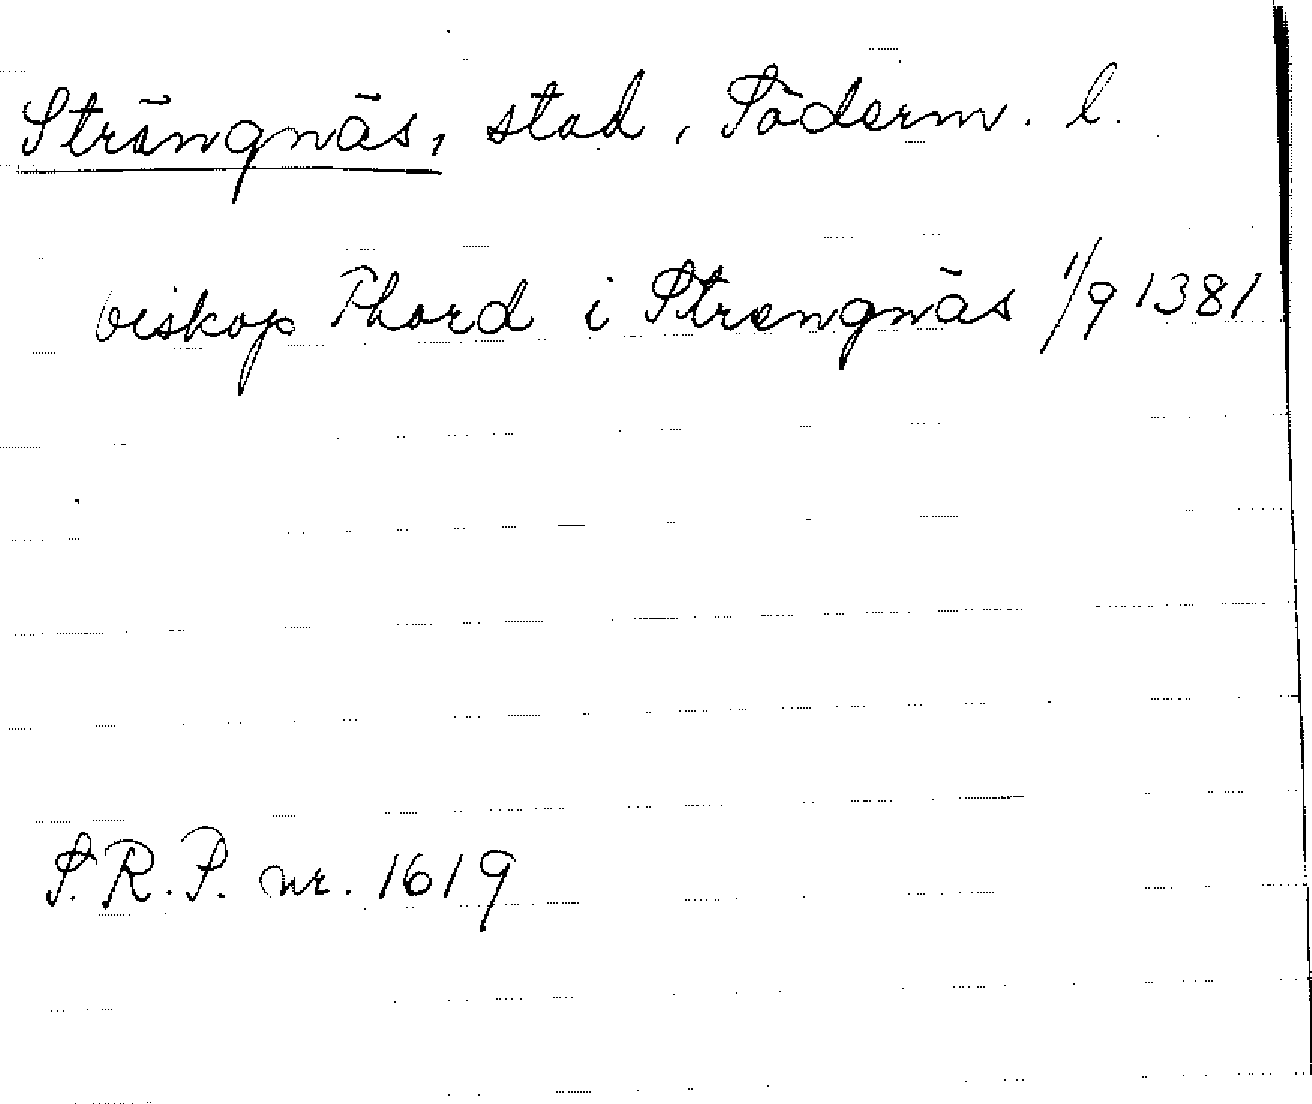 Strängnäs, stad, Söderm. l.
biskop Thord i Strengnäs 1/9 1381
S.R.P. nr. 1619